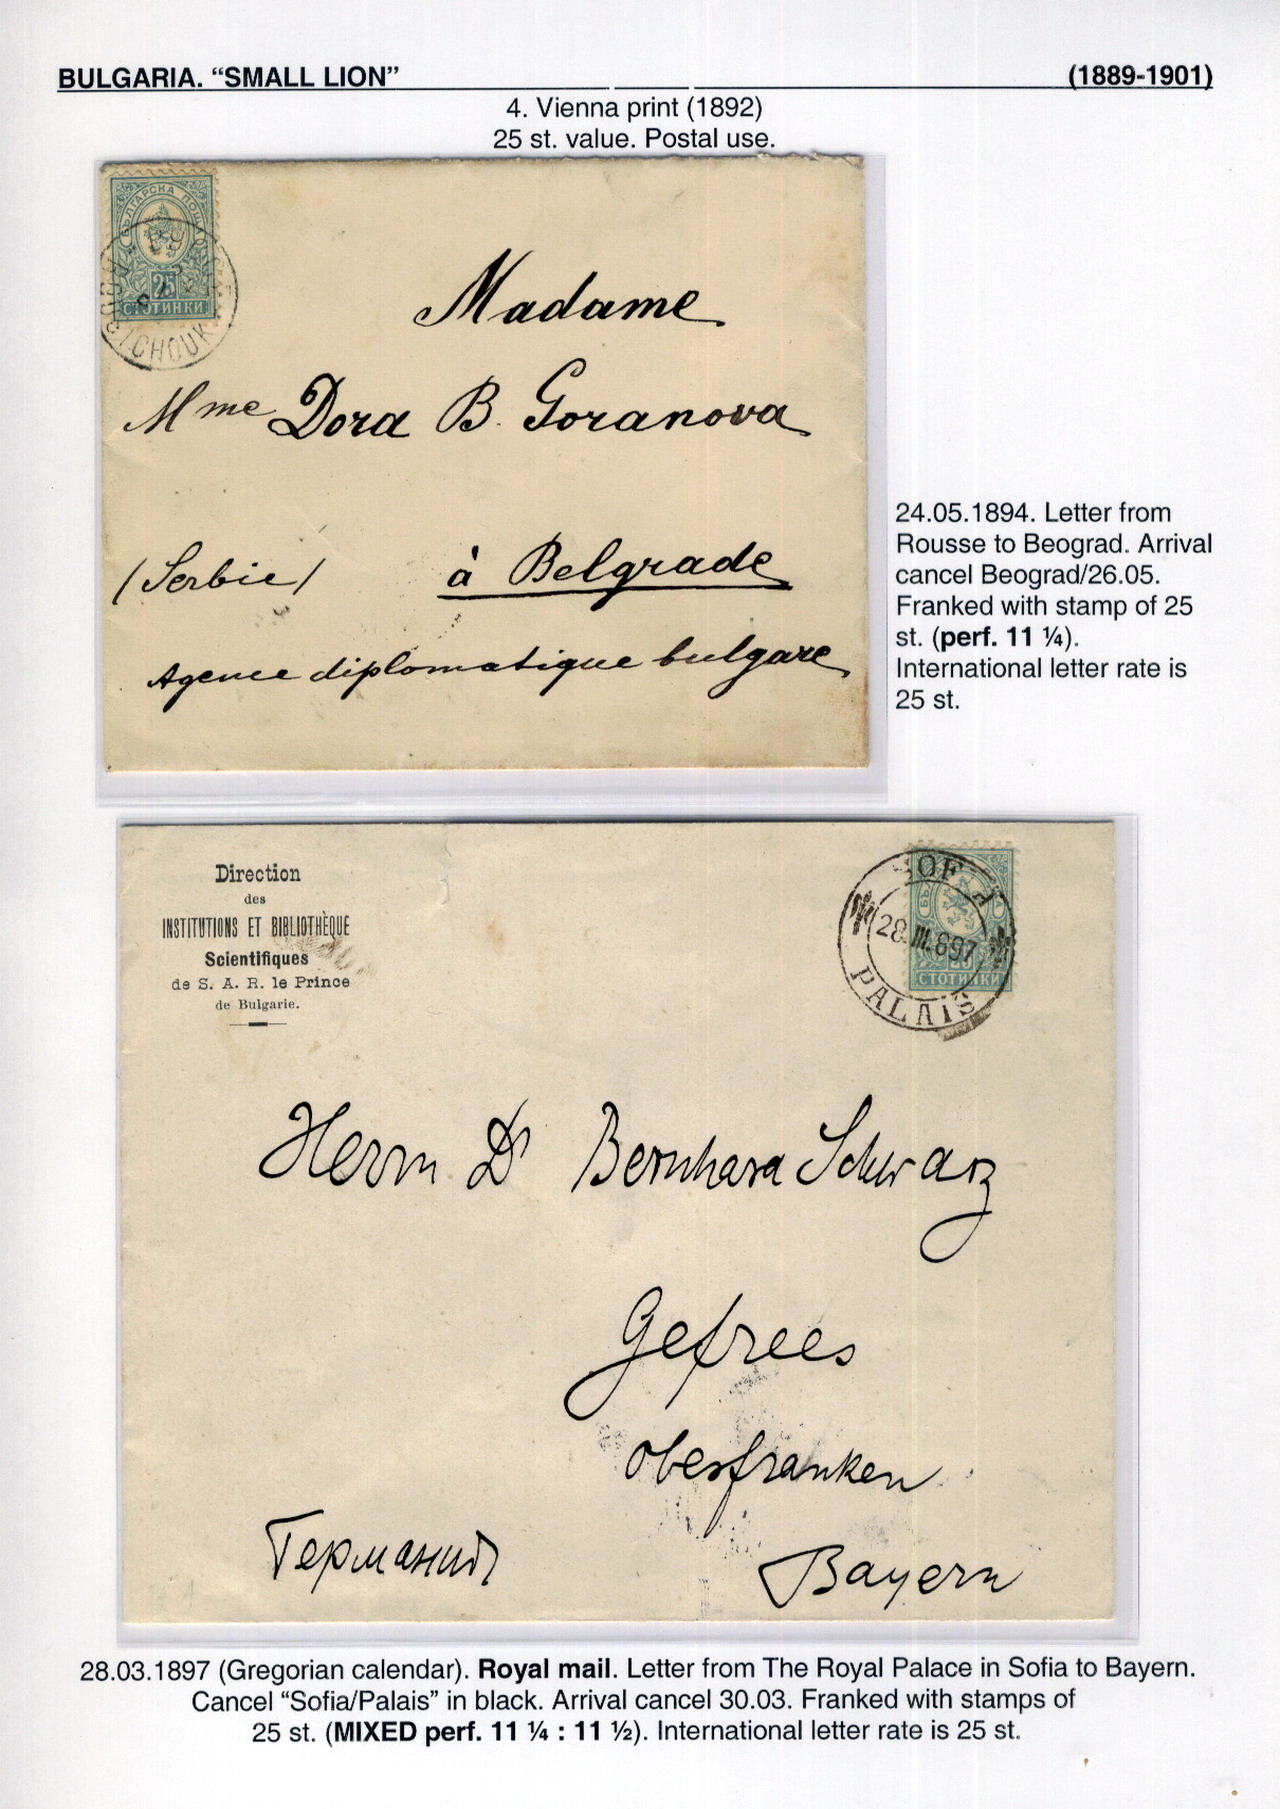 BULGARIA. “SMALL LION” (1889-1901)
4. Vienna print (1892)
25 st. value. Postal use.
БЪЛГАРСКА ПОЩА
25
СТОТИНКИ
Madame
Mme Dora B. Goranova
(Serbie) à Belgrade
Agence diplomatique bulgare
24.05.1894. Letter from
Rousse to Beograd. Arrival
cancel Beograd/26.05.
Franked with stamp of 25
st. (perf. 11 ¼).
International letter rate is
25 st.
Direction
des
INSTITUTIONS ET BIBLIOTHÈQUE
Scientifiques
de S. A. R. le Prince
de Bulgarie.
SOFIA
28.III.897
PALAIS
25
СТОТИНКИ
Herrn Dr Bernhard Schwarz
Gefrees
Oberfranken
Германия
Bayern
28.03.1897 (Gregorian calendar). Royal mail. Letter from The Royal Palace in Sofia to Bayern.
Cancel “Sofia/Palais” in black. Arrival cancel 30.03. Franked with stamps of
25 st. (MIXED perf. 11 ¼ : 11 ½). International letter rate is 25 st.